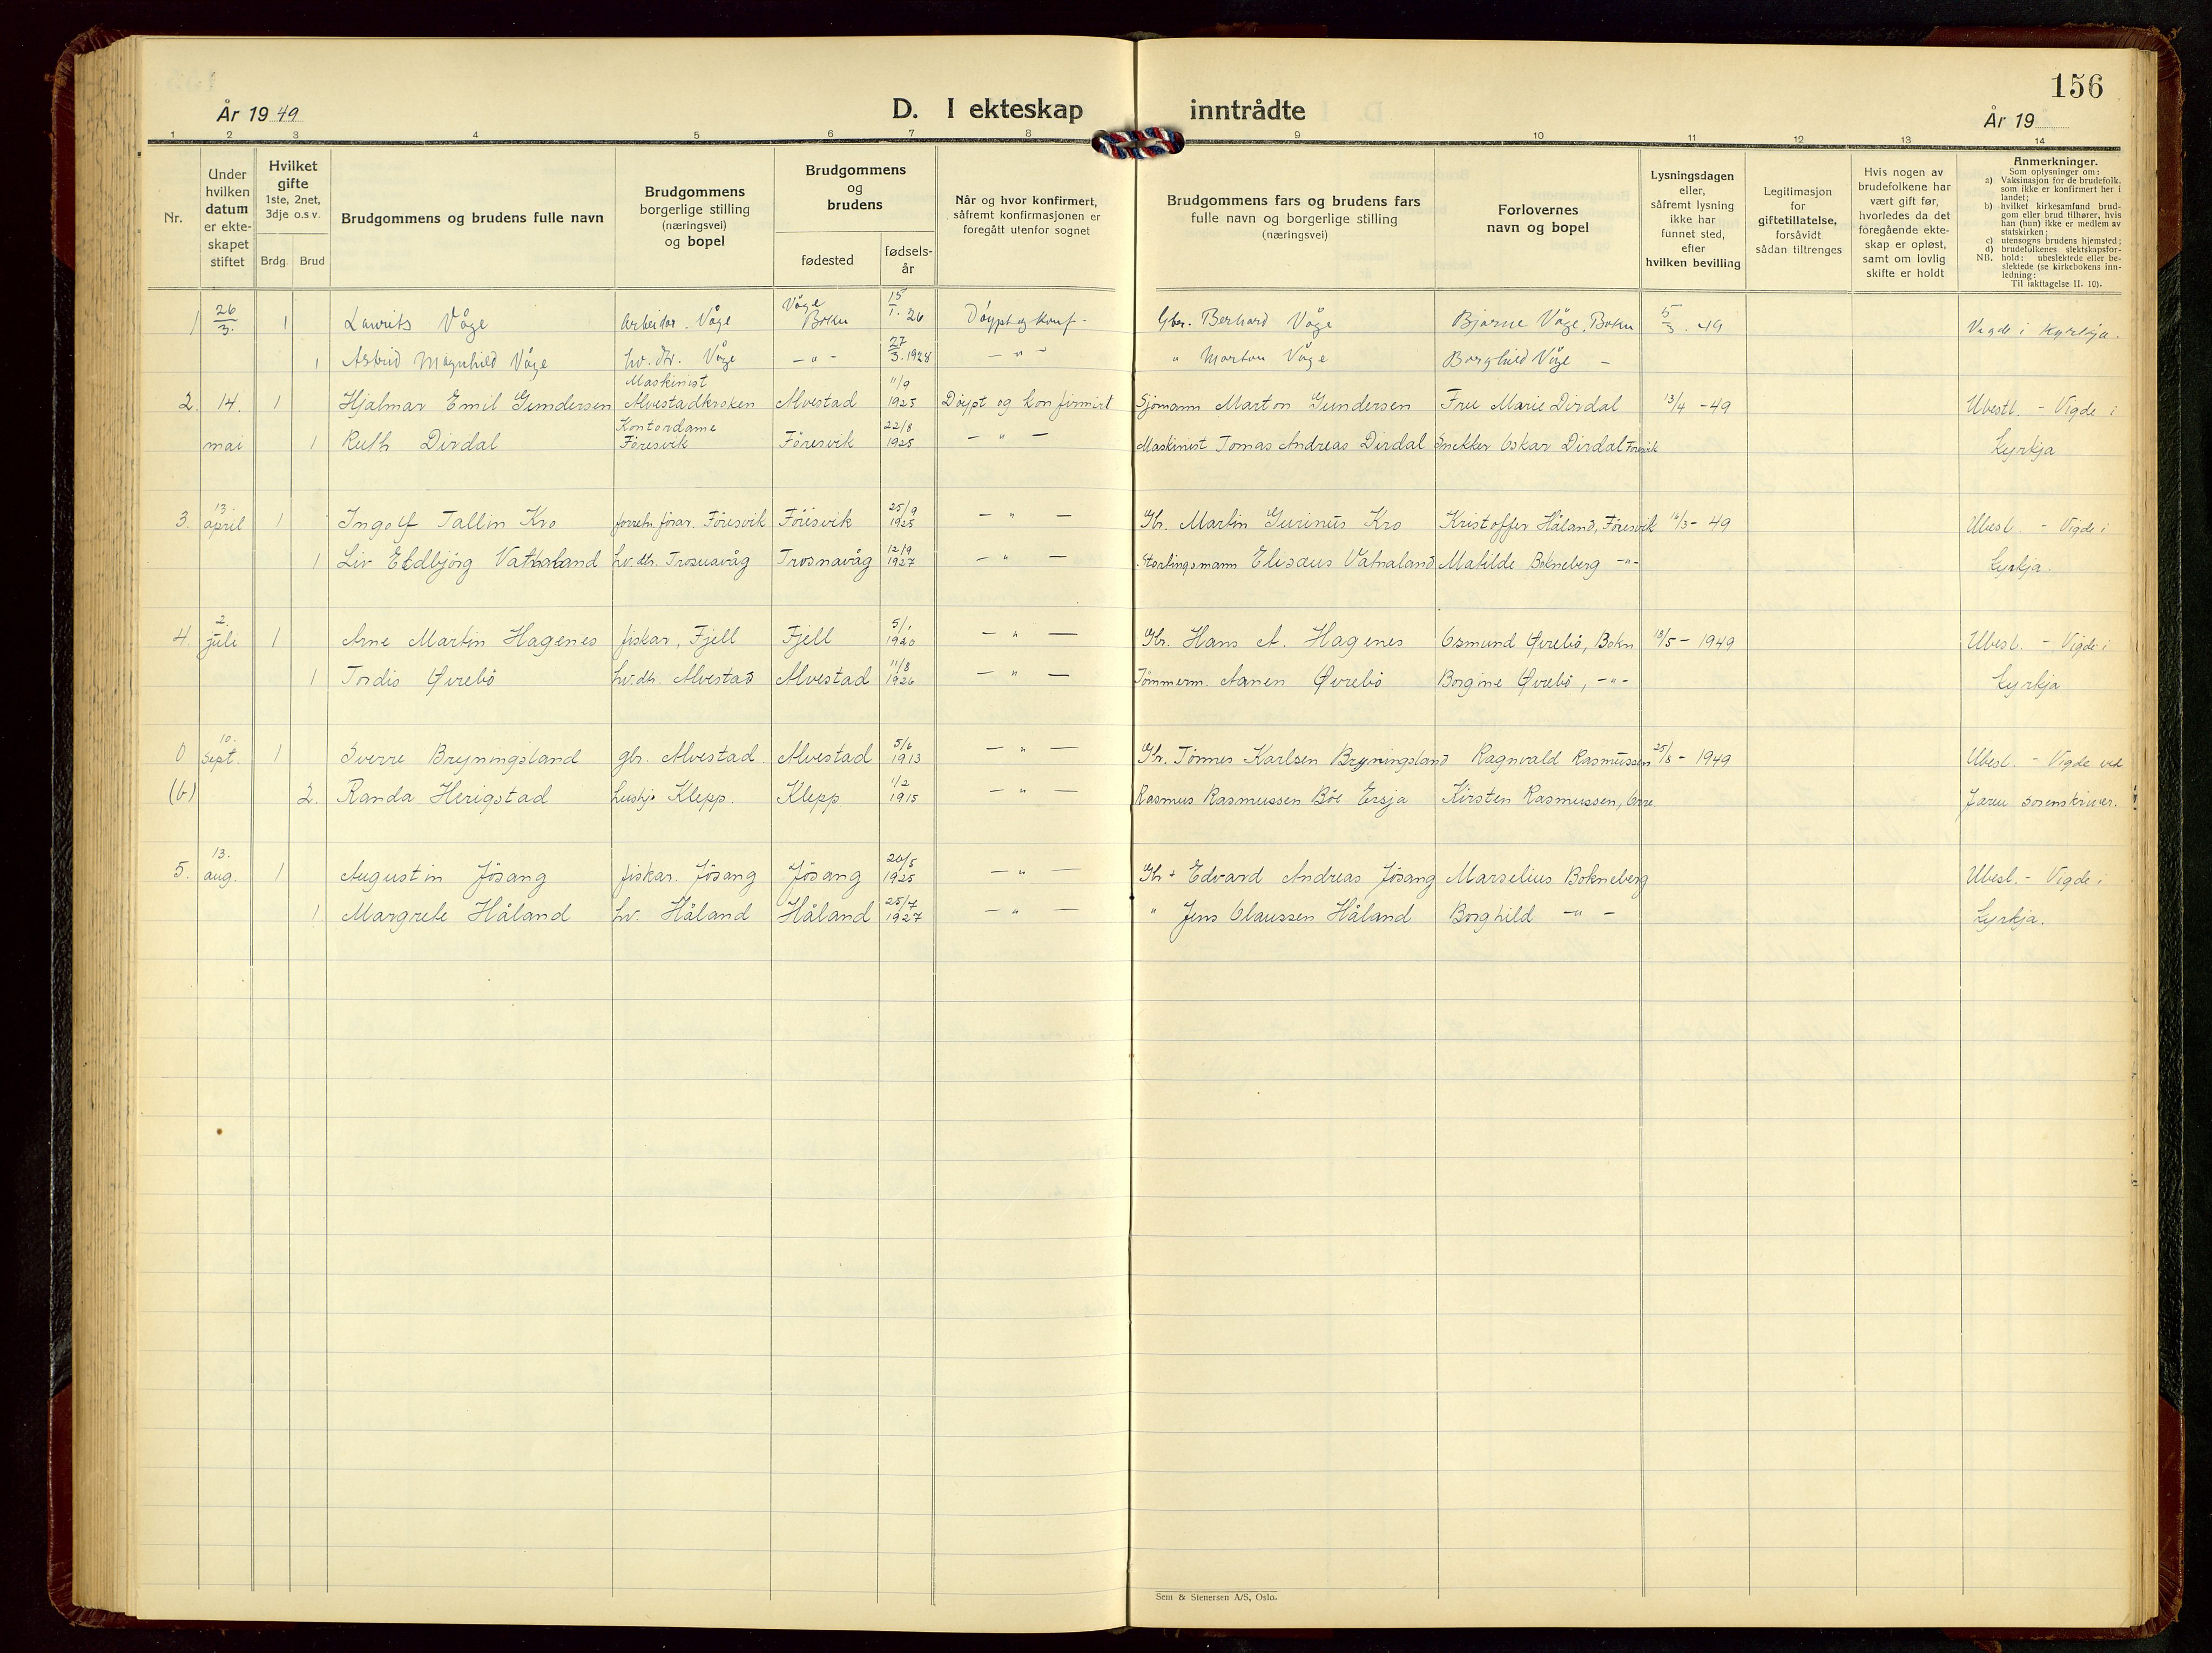 156
År 1949
D. I ekteskap inntrådte
År 19
1 2 3 4 5 6 7 8 9 10 11 12 13 14
Nr.
Under hvilken datum er ekte-skapet stiftet
Hvilket gifte 1ste, 2net, 3dje o.s.v.
Brdg. Brud
Brudgommens og brudens fulle navn
Brudgommens borgerlige stilling (næringsvei) og bopel
Brudgommens og brudens
fødested
fødsels-år
Når og hvor konfirmert, såfremt konfirmasjonen er foregått utenfor sognet
Brudgommens fars og brudens fars fulle navn og borgerlige stilling (næringsvei)
Forlovernes navn og bopel
Lysningsdagen eller, såfremt lysning ikke har funnet sted, efter hvilken bevilling
Legitimasjon for giftetillatelse, forsåvidt sådan tiltrenges
Hvis nogen av brudefolkene har vært gift før, hvorledes da det foregående ekte-skap er opløst, samt om lovlig skifte er holdt
Anmerkninger.
Som oplysninger om:
a) Vaksinasjon for de brudefolk, som ikke er konfirmert her i landet;
b) hvilket kirkesamfund brud-gom eller brud tilhører, hvis han (hun) ikke er medlem av statskirken;
c) utensogns brudens hjemsted;
d) brudefolkenes slektskapsfor-hold: ubeslektede eller be-slektede (se kirkebokens inn-ledning:
NB.
Til iakttagelse II. 10).
1 26/3. 1 Laurits Våge Arbeidar. Våge Våge Bokn 15/1. 26 Döypt og konf. Gbr. Berhard Våge Bjarne Våge, Bokn 5/3. 49 Vigde i Kyrkja.
1 Astrid Magnhild Våge hv. dtr. Våge — " — 27/3. 1928 — " — " Morton Våge Borghild Våge —
2. 14. mai 1 Hjalmar Emil Gundersen Maskinist Alvestadkroken Alvestad 11/9 1925 Döypt og konfirmert Sjömann Marton Gundersen Frue Marie Dirdal 13/4 - 49 Ubesl. - Vigde i
1 Ruth Dirdal Kontordame Föresvik Föresvik 22/8 1925 — " — Maskinist Tomas Andreas Dirdal Snekker Oskar Dirdal Föresvik Kyrkja
3. 13. april 1 Ingolf Tallin Kro forretn. förar. Föresvik Föresvik 25/9 1925 — " — Gbr. Martin Gurinus Kro Kristoffer Håland, Föresvik 16/3 - 49 Ubesl. - Vigde i
1 Liv Eldbjörg Vatnaland hv. dtr. Trosnavåg Trosnavåg 12/9 1927 — " — Stortingsmann Elisaus Vatnaland Matilde Bokneberg — " — Kyrkja.
4. 2. juli 1 Arne Martin Hagenes fiskar, Fjell Fjell 5/1 1920 — " — Gbr. Hans A. Hagenes Osmund Øvrebö, Bokn 13/5 - 1949 Ubesl. - Vigde i
1 Tordis Øvrebö hv. dtr. Alvestad Alvestad 11/8 1926 — " — Tömmerm. Aanen Øvrebö Borgine Øvrebö, — " — Kyrkja
0 10. sept. 1 Sverre Bryningsland gbr. Alvestad Alvestad 5/6 1913 — " — Gbr. Tönnes Karlsen Bryningsland Ragnvald Rasmussen 25/8 - 1949 Ubesl. - Vigde ved
(b) 2. Randa Herigstad Klepp. Klepp 1/2 1915 — " — Rasmus Rasmussen Böe Ersja Kirsten Rasmussen, Orre. Jæren sorenskriver.
5. 13. aug. 1 Augustin Jösang fiskar. Jösang Jösang 20/5 1925 — " — Gbr + Edvard Andreas Jösang Marselius Bokneberg Ubesl. - Vigde i
1 Margrete Håland hv. Håland Håland 25/7 1927 — " — " Jens Claussen Håland Borghild — " — Kyrkja.
Sem & Stenersen A/S, Oslo.